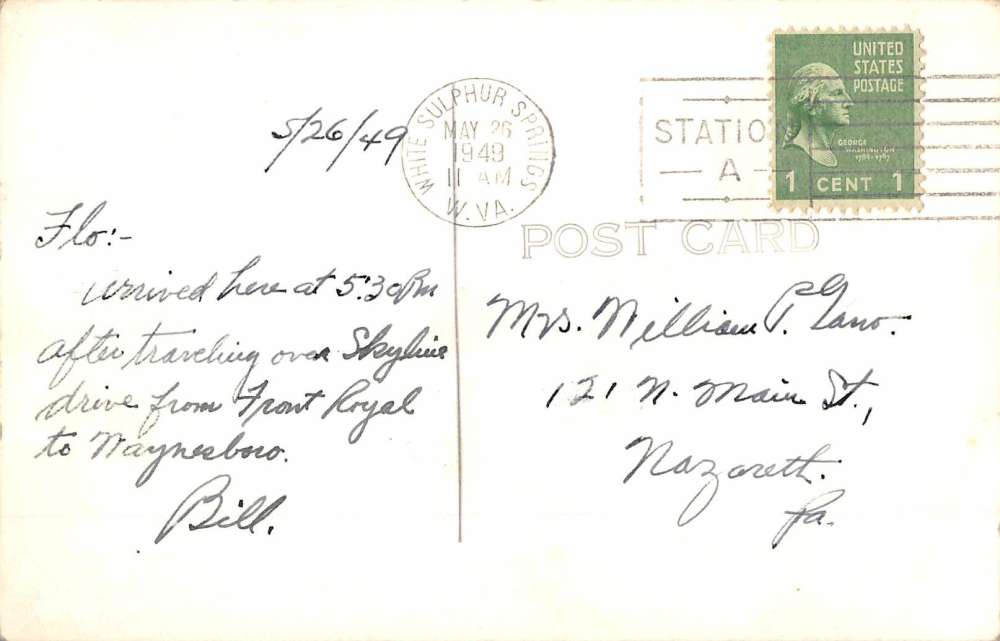 5/26/49
WHITE SULPHUR SPRINGS
MAY 26
1949
11 AM
W. VA.
STATIO
A
UNITED
STATES
POSTAGE
GEORGE
WASHINGTON
1789-1797
1 CENT 1
POST CARD
Flo:-
arrived here at 5:30 Pm
after traveling over Skyline
drive from Front Royal
to Waynesboro.
Bill.
Mrs. William P.
121 N. Main St.,
Nazareth.
Pa.